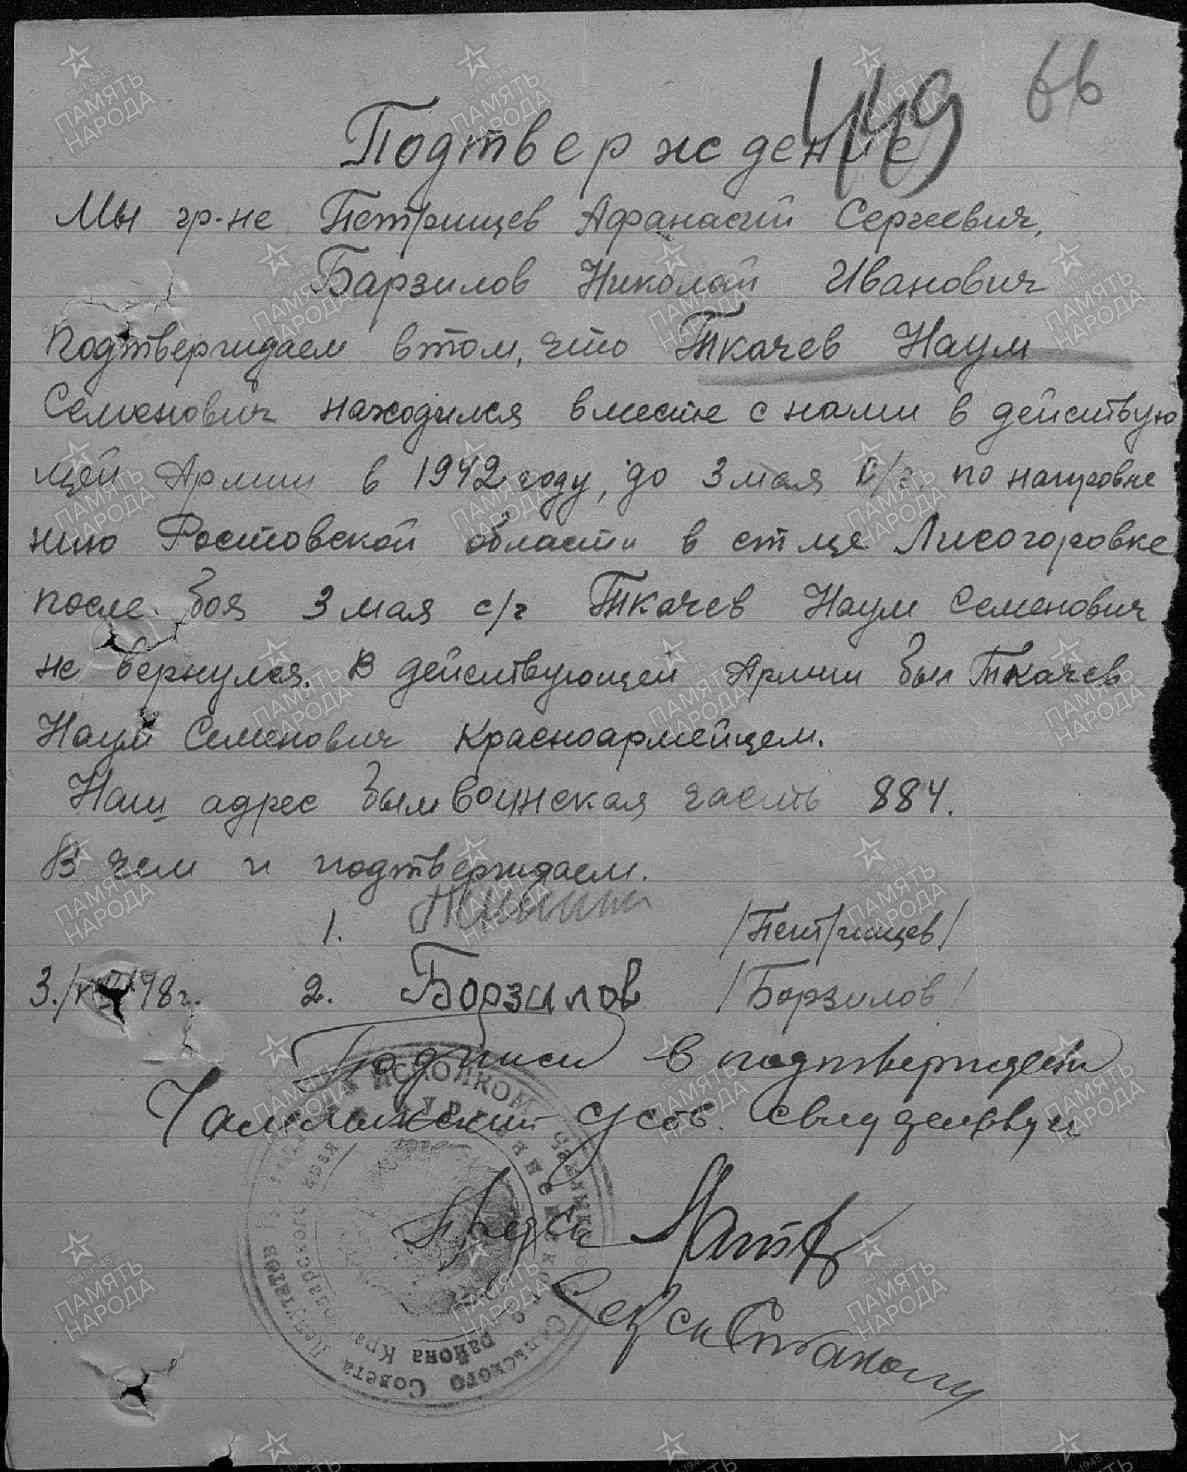 449 66
Подтверждение
Мы гр-не Петрищев Афанасий Сергеевич,
Барзилов Николай Иванович
подтверждаем в том, что Ткачев Наум
Семенович находился вместе с нами в действую
щей Армии в 1942 году, до 3 мая с/г. по
нию Ростовской области в ст це Лисогоровке
после боя 3 мая с/г Ткачев Наум Семенович
не вернулся. В действующей Армии был Ткачев
Наум Семенович Красноармейцем.
Наш адрес был воинская часть 884.
В чем и подтверждаем.
1. /Петрищев/
2. Борзилов /Борзилов/
Подписи в
Чамлыкский
Предс
Секр
ИСПОЛКОМ Сельского Совета Депутатов района
ПАМЯТЬ НАРОДА